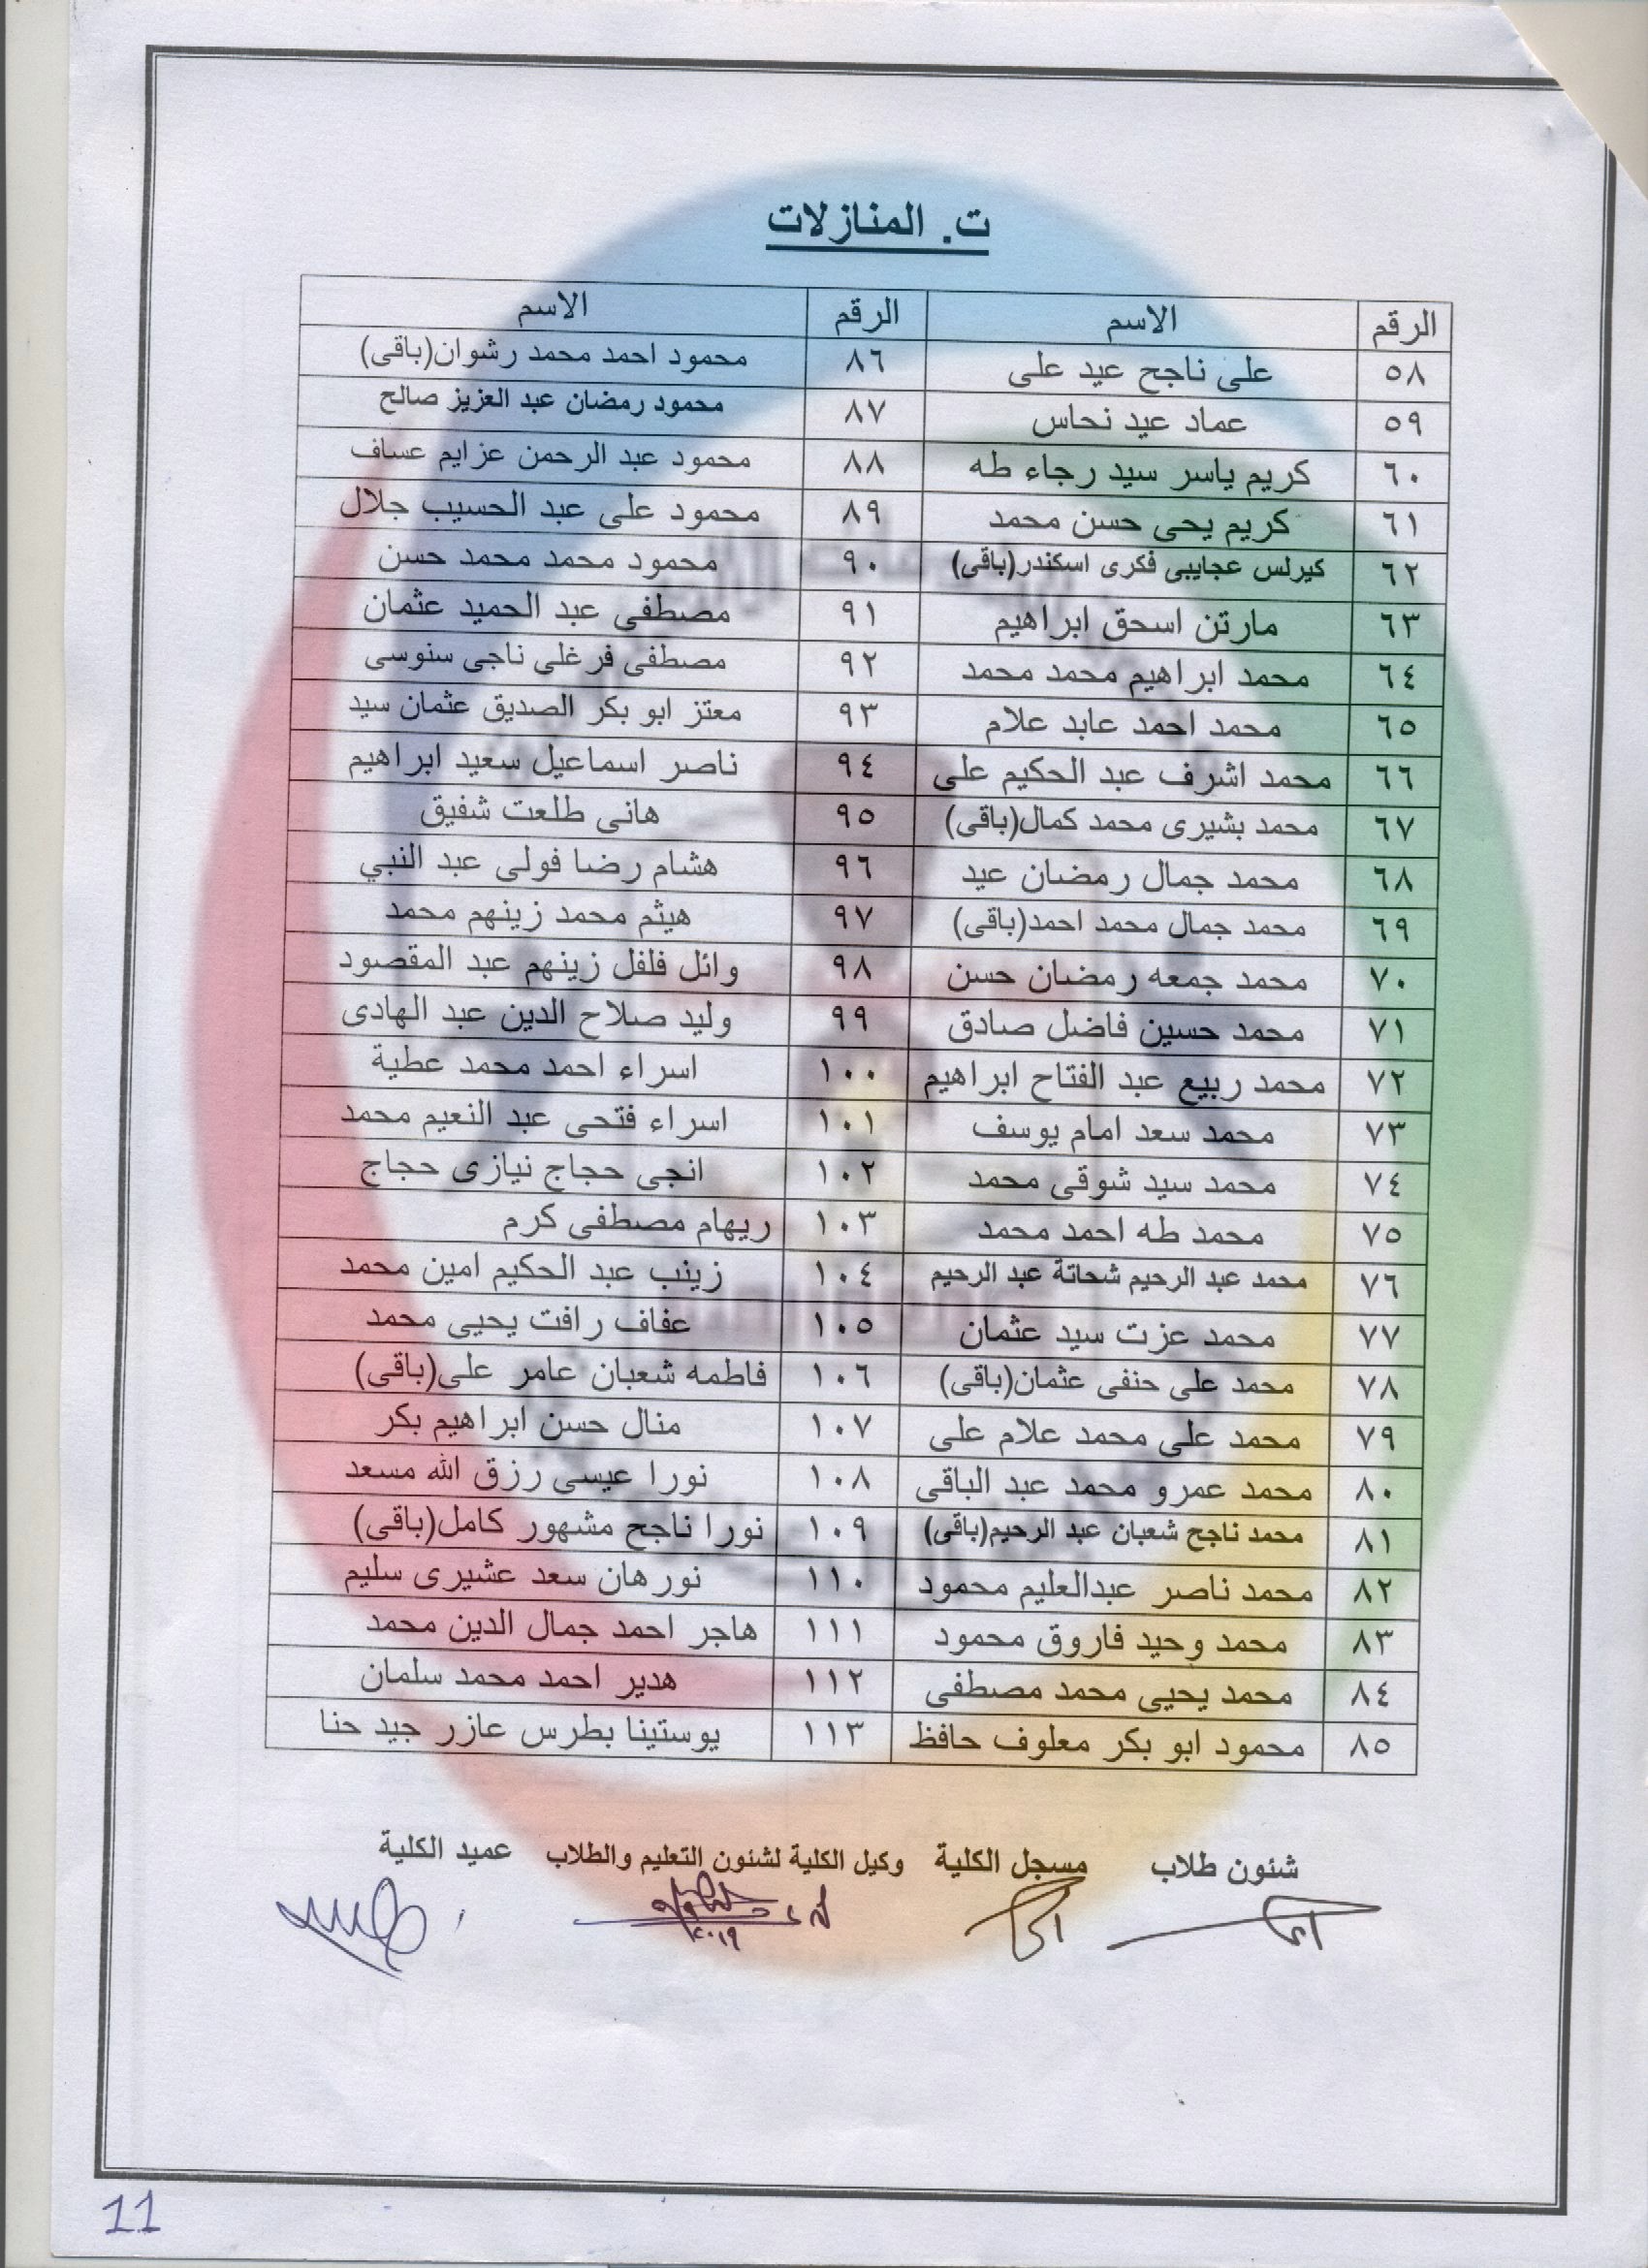 ت. المنازلات
الرقم الاسم الرقم الاسم
٥٨ على ناجح عيد على ٨٦ محمود احمد محمد رشوان(باقى)
٥٩ عماد عيد نحاس ٨٧ محمود رمضان عبد العزيز صالح
٦٠ كريم ياسر سيد رجاء طه ٨٨ محمود عبد الرحمن عزايم عساف
٦١ كريم يحى حسن محمد ٨٩ محمود على عبد الحسيب جلال
٦٢ كيرلس عجايبى فكرى اسكندر(باقى) ٩٠ محمود محمد محمد حسن
٦٣ مارتن اسحق ابراهيم ٩١ مصطفى عبد الحميد عثمان
٦٤ محمد ابراهيم محمد محمد ٩٢ مصطفى فرغلى ناجى سنوسى
٦٥ محمد احمد عابد علام ٩٣ معتز ابو بكر الصديق عثمان سيد
٦٦ محمد اشرف عبد الحكيم على ٩٤ ناصر اسماعيل سعيد ابراهيم
٦٧ محمد بشيرى محمد كمال(باقى) ٩٥ هانى طلعت شفيق
٦٨ محمد جمال رمضان عيد ٩٦ هشام رضا فولى عبد النبي
٦٩ محمد جمال محمد احمد(باقى) ٩٧ هيثم محمد زينهم محمد
٧٠ محمد جمعه رمضان حسن ٩٨ وائل فلفل زينهم عبد المقصود
٧١ محمد حسين فاضل صادق ٩٩ وليد صلاح الدين عبد الهادى
٧٢ محمد ربيع عبد الفتاح ابراهيم ١٠٠ اسراء احمد محمد عطية
٧٣ محمد سعد امام يوسف ١٠١ اسراء فتحى عبد النعيم محمد
٧٤ محمد سيد شوقى محمد ١٠٢ انجى حجاج نيازى حجاج
٧٥ محمد طه احمد محمد ١٠٣ ريهام مصطفى كرم
٧٦ محمد عبد الرحيم شحاتة عبد الرحيم ١٠٤ زينب عبد الحكيم امين محمد
٧٧ محمد عزت سيد عثمان ١٠٥ عفاف رافت يحيى محمد
٧٨ محمد على حنفى عثمان(باقى) ١٠٦ فاطمه شعبان عامر على(باقى)
٧٩ محمد على محمد علام على ١٠٧ منال حسن ابراهيم بكر
٨٠ محمد عمرو محمد عبد الباقى ١٠٨ نورا عيسى رزق الله مسعد
٨١ محمد ناجح شعبان عبد الرحيم(باقى) ١٠٩ نورا ناجح مشهور كامل(باقى)
٨٢ محمد ناصر عبدالعليم محمود ١١٠ نورهان سعد عشيرى سليم
٨٣ محمد وحيد فاروق محمود ١١١ هاجر احمد جمال الدين محمد
٨٤ محمد يحيى محمد مصطفى ١١٢ هدير احمد محمد سلمان
٨٥ محمود ابو بكر معلوف حافظ ١١٣ يوستينا بطرس عازر جيد حنا
شئون طلاب مسجل الكلية وكيل الكلية لشئون التعليم والطلاب عميد الكلية
٢٠١٩
11